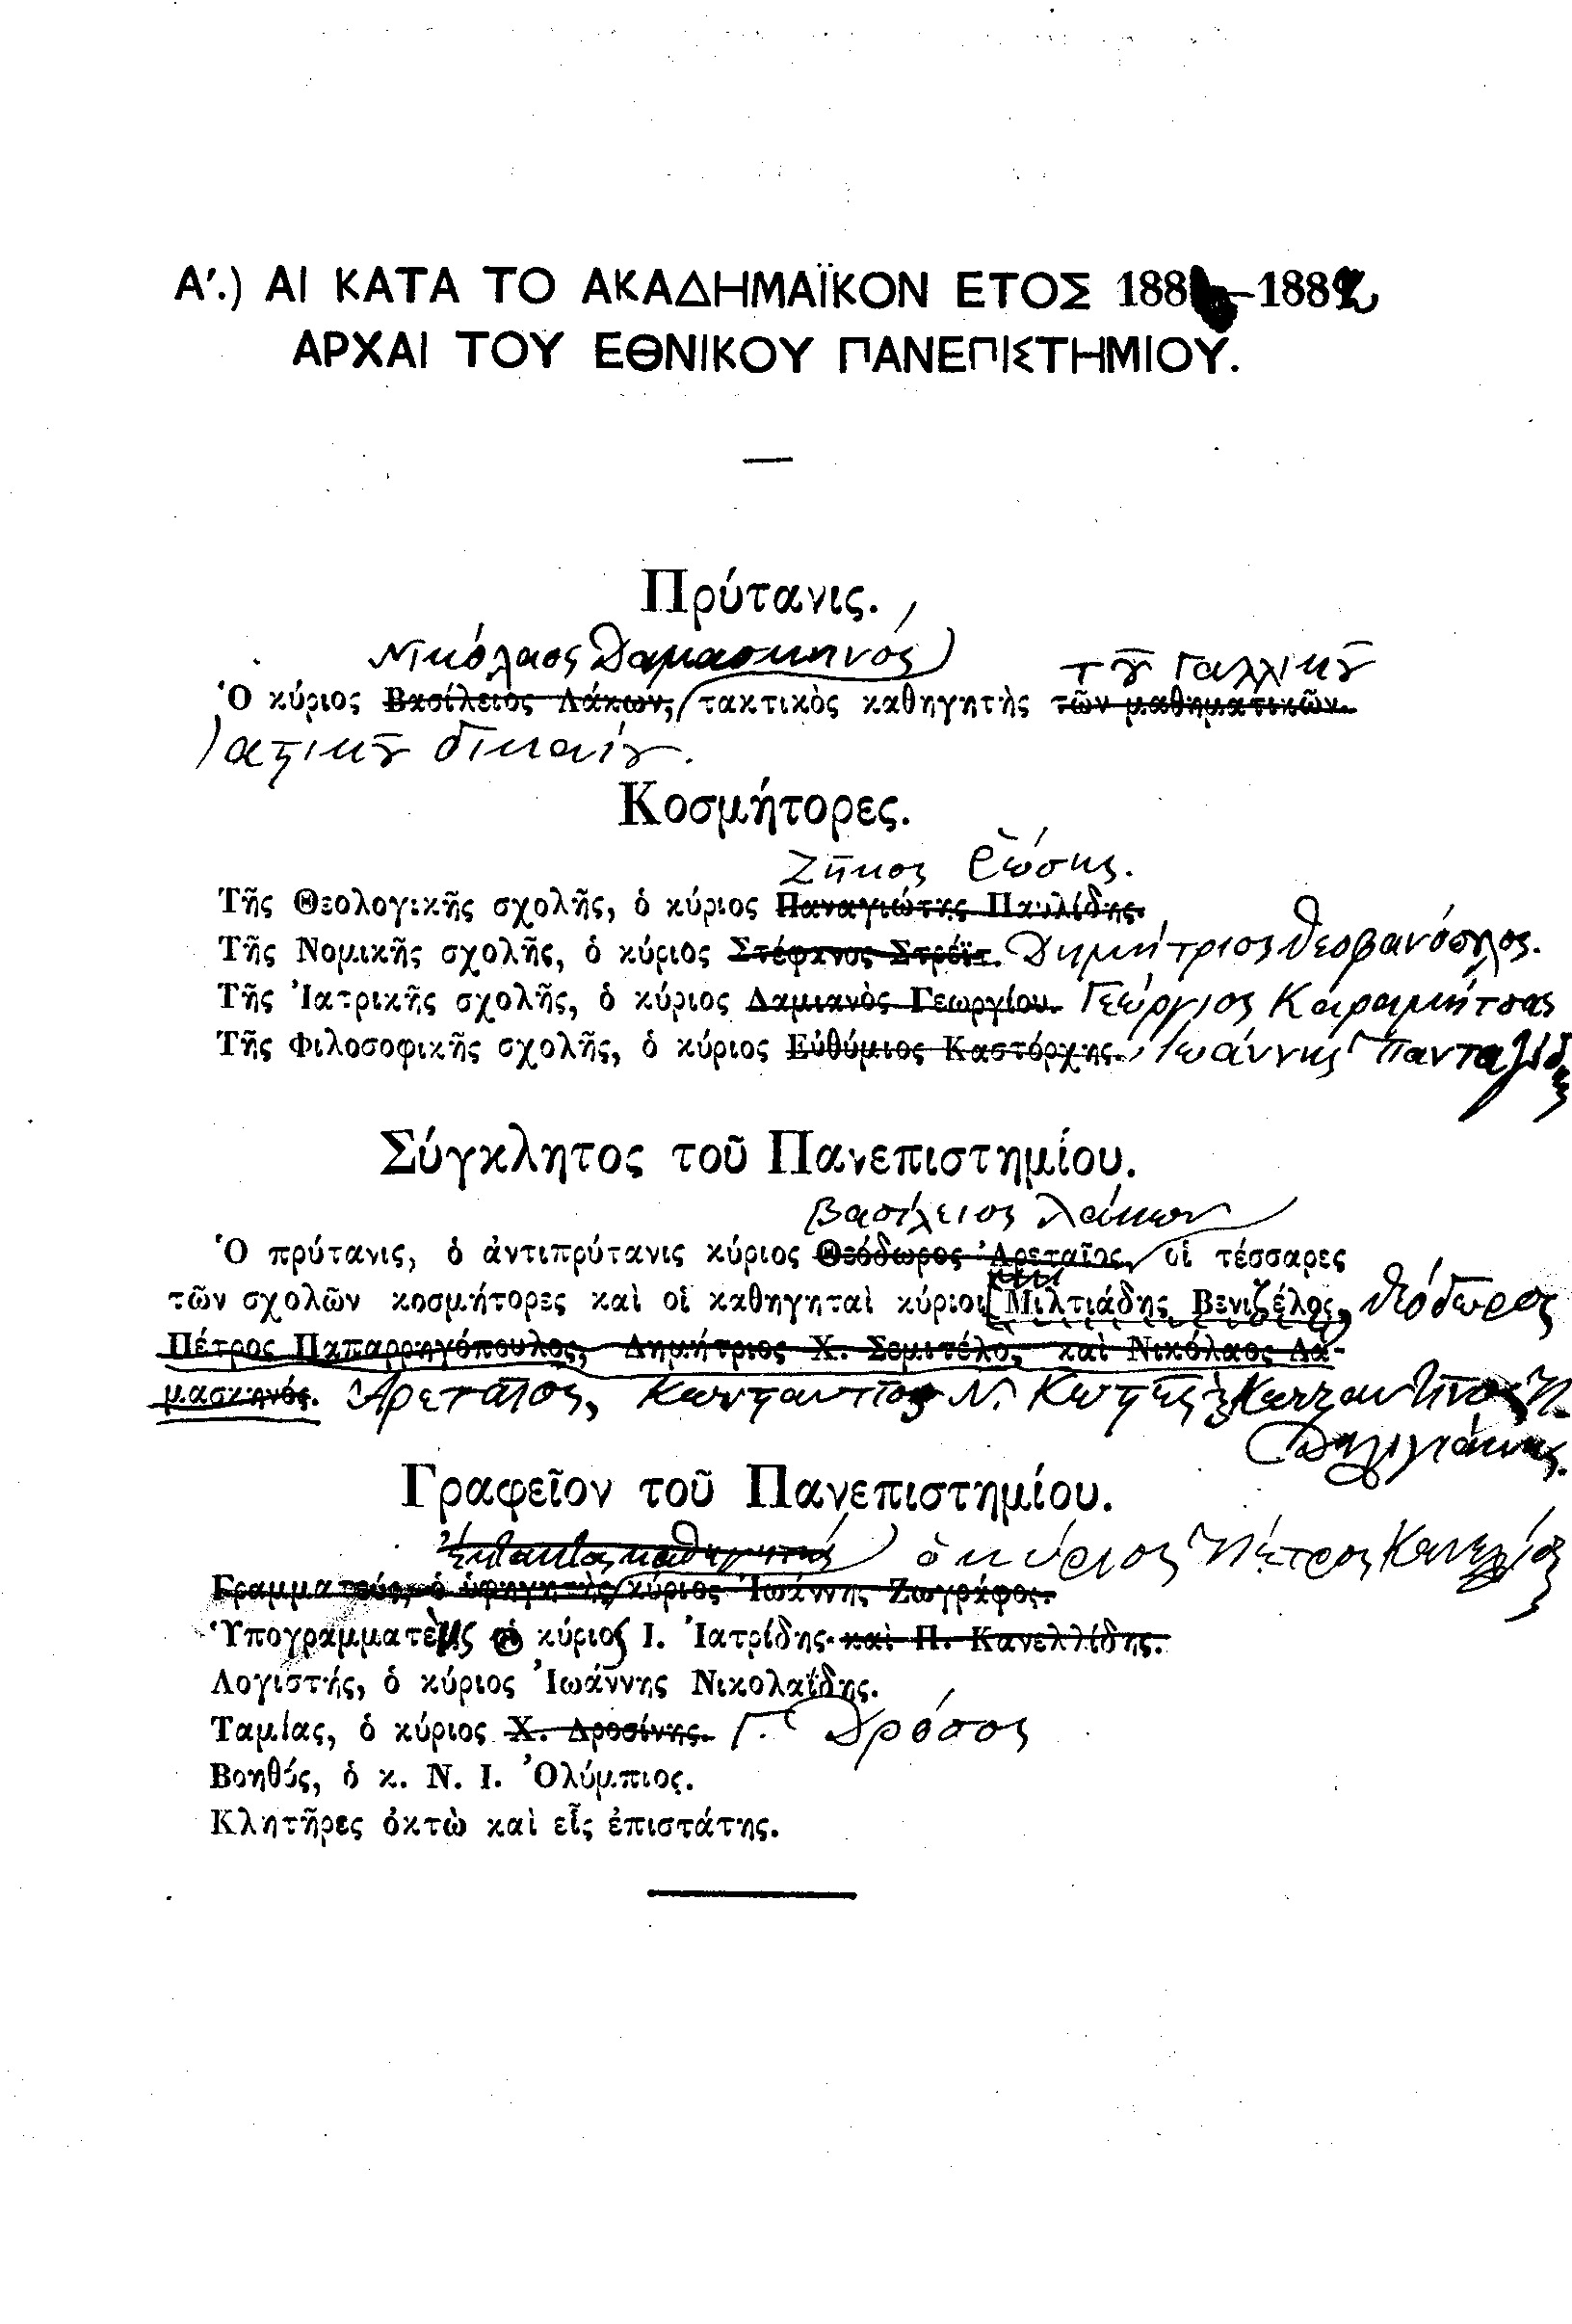 Α΄.) ΑΙ ΚΑΤΑ ΤΟ ΑΚΑΔΗΜΑΪΚΟΝ ΕΤΟΣ 188 –1882
ΑΡΧΑΙ ΤΟΥ ΕΘΝΙΚΟΥ ΠΑΝΕΠΙΣΤΗΜΙΟΥ.
Πρύτανις.
Νικόλαος Δαμασκηνός τοῦ Γαλλικοῦ
Ὁ κύριος Βασίλειος Λάκων, τακτικὸς καθηγητὴς τῶν μαθηματικῶν.
ἀστικοῦ δικαίου.
Κοσμήτορες.
Ζῆκος Ῥώσης.
Τῆς Θεολογικῆς σχολῆς, ὁ κύριος Παναγιώτης Παυλίδης.
Τῆς Νομικῆς σχολῆς, ὁ κύριος Στέφανος Στρέϊτ. Δημήτριος Θεοφανόπουλος.
Τῆς Ἰατρικῆς σχολῆς, ὁ κύριος Δαμιανὸς Γεωργίου. Γεώργιος Καραμήτσας
Τῆς Φιλοσοφικῆς σχολῆς, ὁ κύριος Εὐθύμιος Καστόρχης. Ἰωάννης Πανταζίδης
Σύγκλητος τοῦ Πανεπιστημίου.
Βασίλειος Λάκων
Ὁ πρύτανις, ὁ ἀντιπρύτανις κύριος Θεόδωρος Ἀρεταῖος, οἱ τέσσαρες
τῶν σχολῶν κοσμήτορες καὶ οἱ καθηγηταὶ κύριοι Μιλτιάδης Βενιζέλος, Θεόδωρος
Πέτρος Παπαρρηγόπουλος, Δημήτριος Χ. Σεμιτέλο, καὶ Νικόλαος Δα-
μασκηνός. Ἀρεταῖος, Κωνσταντῖνος Ν. Κωστῆς Κωνσταντῖνος Ν.
Δηλιγιάννης.
Γραφεῖον τοῦ Πανεπιστημίου.
ἔκτακτος καθηγητής ὁ κύριος Πέτρος Κανελλίδης
Γραμματεύς, ὁ ὑφηγητὴς κύριος Ἰωάννης Ζωγράφος.
Ὑπογραμματεὺς ὁ κύριος Ι. Ἰατρίδης καὶ Π. Κανελλίδης.
Λογιστής, ὁ κύριος Ἰωάννης Νικολαΐδης.
Ταμίας, ὁ κύριος Χ. Δροσίνης. Γ. Δρόσος
Βοηθός, ὁ κ. Ν. Ι. Ὀλύμπιος.
Κλητῆρες ὀκτὼ καὶ εἷς ἐπιστάτης.